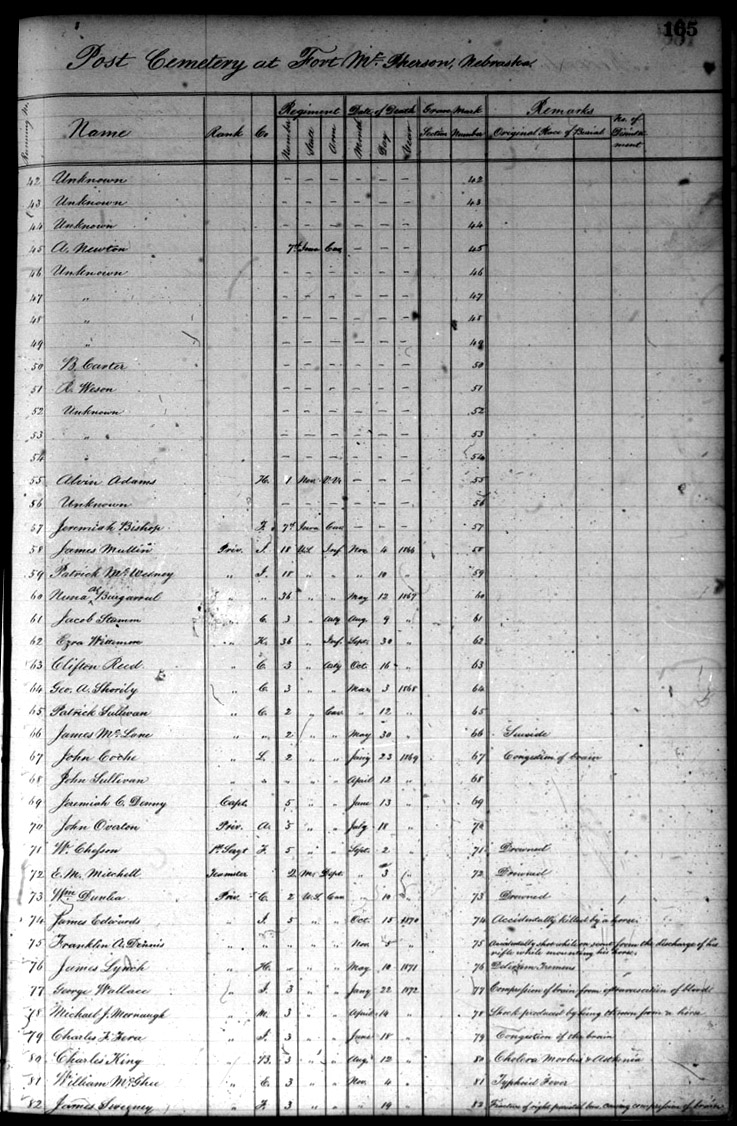 165
Post Cemetery at Fort McPherson, Nebraska.
Running No. Name Rank Co Regiment Date of Death Grave Mark Remarks
Number State Arm Month Day Year Section Number Original Place of Burial No. of Disinterment
42 Unknown — — — — — — 42
43 Unknown — — — — — — 43
44 Unknown — — — — — — 44
45 A. Newton 7th Iowa Cav — — — 45
46 Unknown — — — — — — 46
47 " — — — — — — 47
48 " — — — — — — 48
49 " — — — — — — 49
50 B. Carter — — — — — — 50
51 R. Weson — — — — — — 51
52 Unknown — — — — — — 52
53 " — — — — — — 53
54 " — — — — — — 54
55 Alvin Adams H. 1 — — — 55
56 Unknown — — — — — — 56
57 Jeremiah Bishop F. 7th Iowa Cav — — — 57
58 James Mullin Priv. I. 18 U.S. Inf Nov. 4 1866 58
59 Patrick " I. 18 " " " 10 " 59
60 " " 36 " " May 12 1867 60
61 Jacob Stamm " C. 3 " Arty Aug. 9 " 61
62 Ezra " K. 36 " Inf. Sept. 30 " 62
63 Clifton Reed " C. 3 " Arty Oct. 16 " 63
64 Geo. A. Shorily " C. 3 " " Mar. 3 1868 64
65 Patrick Sullivan " C. 2 " Cav " 12 " 65
66 James McLane " " 2 " " May 30 " 66 Suicide
67 John Coche " L. 2 " " Jany 23 1869 67 Congestion of brain
68 John Sullivan " " " " " April 12 " 68
69 Jeremiah C. Denny Capt. 5 " " June 13 " 69
70 John Ovaton Priv. A. 5 " " July 18 " 70
71 W. Chesson 1st Sergt F. 5 " " Sept. 2 " 71 Drowned
72 E. M. Mitchell Teamster Q. M. Dept. " 3 " 72 Drowned
73 Wm Dunlea Priv. C. 2 U.S. Cav " 10 " 73 Drowned
74 James Edwards " I. 5 " " Oct. 15 1870 74 Accidentally killed by a horse.
75 Franklin A. Dennis " " " " " Nov. 5 " 75 Accidentally shot while on scout from the discharge of his
rifle while mounting his horse.
76 James Lynch " H. " " " May 10 1871 76 Delirium Tremens
77 George Wallace " I. 3 " " Jany 22 1872 77 Compression of brain from extravasation of blood
78 Michael J. " M. 3 " " April 14 " 78 Shock produced by being thrown from a horse
79 Charles F. " I. 3 " " June 18 " 79 Congestion of the brain
80 Charles King " B. 3 " " Augt 12 " 80 Cholera Morbus & Asthenia
81 William McGhee " E. 3 " " Nov. 4 " 81 Typhoid Fever
82 James Sweeney " F. 3 " " " 19 " 82 Fracture of right parietal bone causing compression of brain